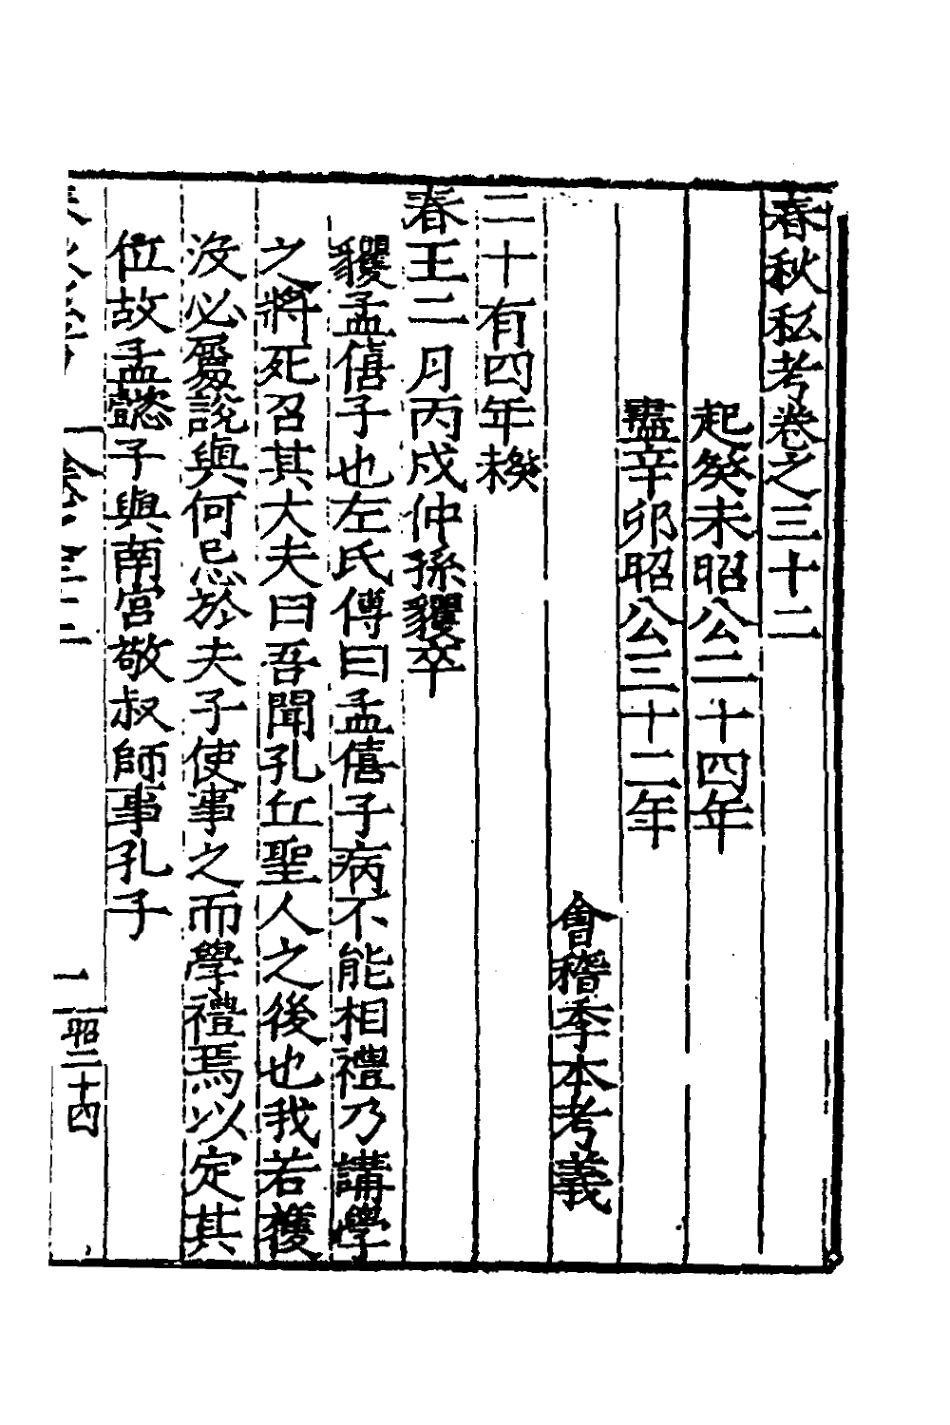 春秋私考卷之三十二
起癸未昭公二十四年
盡辛卯昭公三十二年
會稽季本考義
二十有四年
春王二月丙戌仲孫貜卒
貜孟僖子也左氏傳曰孟僖子病不能相禮乃講學
之將死召其大夫曰吾聞孔丘聖人之後也我若獲
沒必屬說與何忌於夫子使事之而學禮焉以定其
位故孟懿子與南宮敬叔師事孔子
一
昭二十四